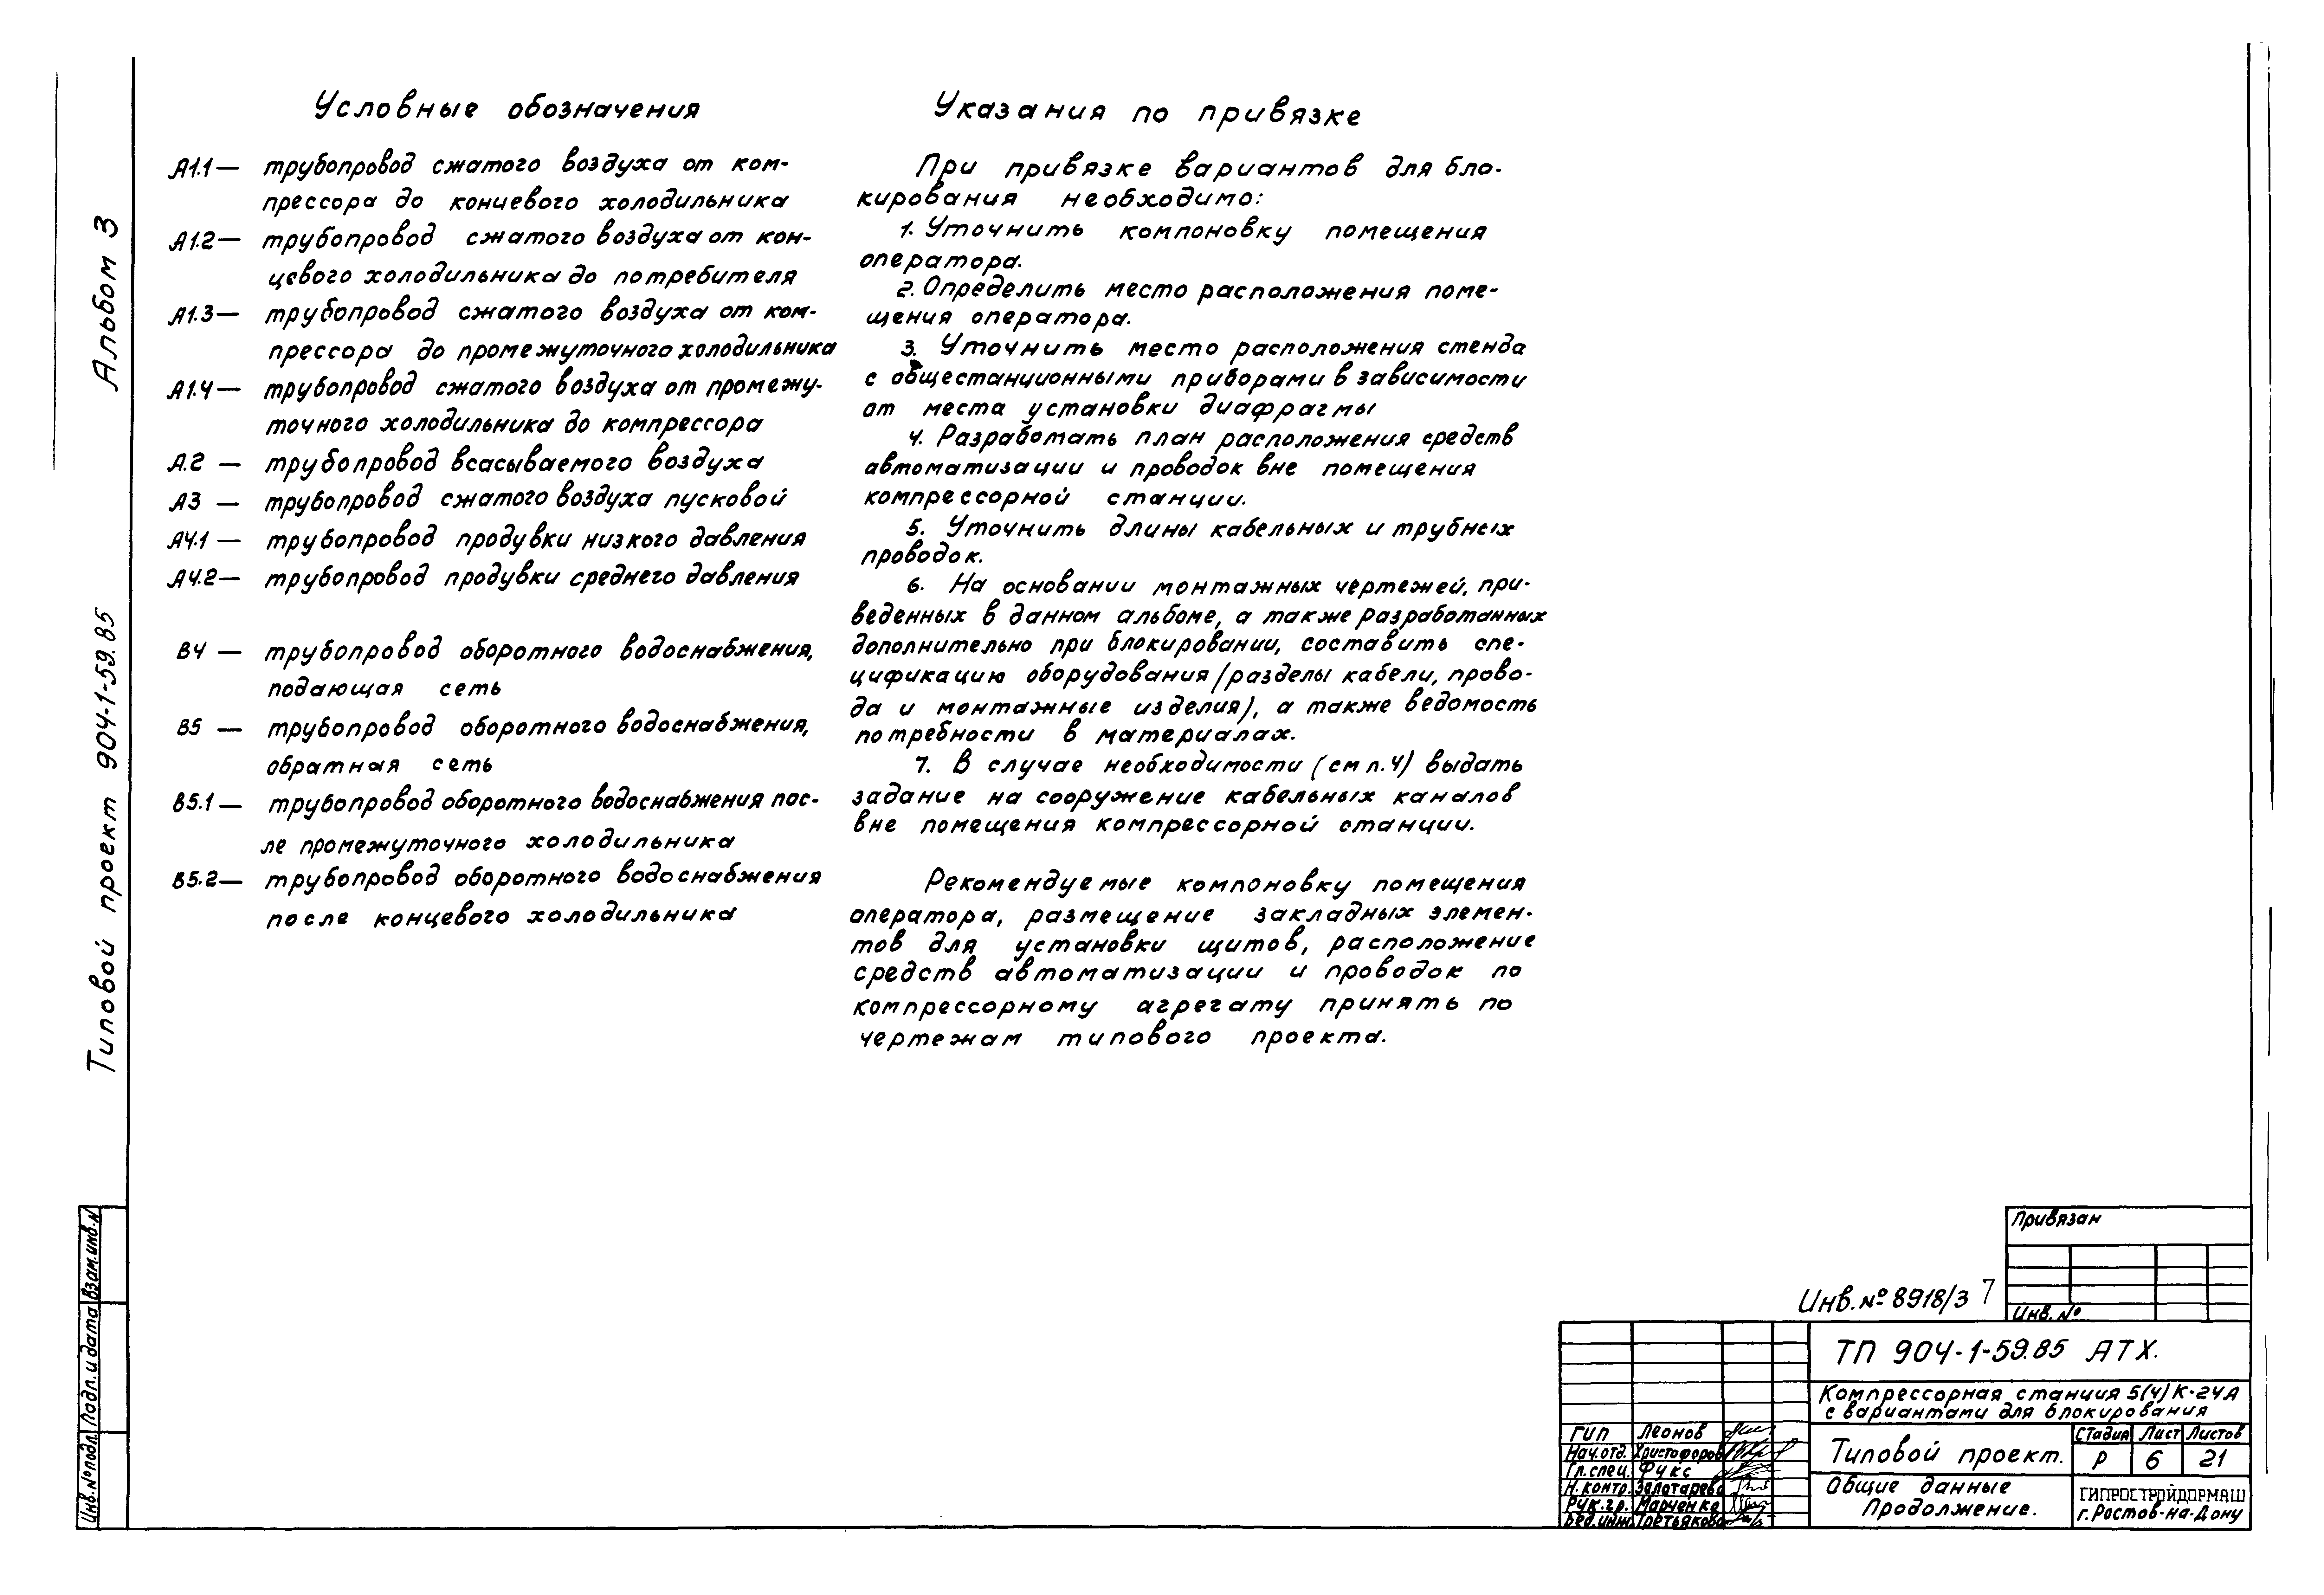 Альбом 3
Типовой проект 904-1-59.85
Условные обозначения
А1.1 — трубопровод сжатого воздуха от ком-
прессора до концевого холодильника
А1.2 — трубопровод сжатого воздуха от кон-
цевого холодильника до потребителя
А1.3 — трубопровод сжатого воздуха от ком-
прессора до промежуточного холодильника
А1.4 — трубопровод сжатого воздуха от промежу-
точного холодильника до компрессора
А.2 — трубопровод всасываемого воздуха
А3 — трубопровод сжатого воздуха пусковой
А4.1 — трубопровод продувки низкого давления
А4.2 — трубопровод продувки среднего давления
В4 — трубопровод оборотного водоснабжения,
подающая сеть
В5 — трубопровод оборотного водоснабжения,
обратная сеть
В5.1 — трубопровод оборотного водоснабжения пос-
ле промежуточного холодильника
В5.2 — трубопровод оборотного водоснабжения
после концевого холодильника
Указания по привязке
При привязке вариантов для бло-
кирования необходимо:
1. Уточнить компоновку помещения
оператора.
2. Определить место расположения поме-
щения оператора.
3. Уточнить место расположения стенда
с общестанционными приборами в зависимости
от места установки диафрагмы
4. Разработать план расположения средств
автоматизации и проводок вне помещения
компрессорной станции.
5. Уточнить длины кабельных и трубных
проводок.
6. На основании монтажных чертежей, при-
веденных в данном альбоме, а также разработанных
дополнительно при блокировании, составить спе-
цификацию оборудования /разделы кабели, прово-
да и монтажные изделия), а также ведомость
потребности в материалах.
7. В случае необходимости (см п.4) выдать
задание на сооружение кабельных каналов
вне помещения компрессорной станции.
Рекомендуемые компоновку помещения
оператора, размещение закладных элемен-
тов для установки щитов, расположение
средств автоматизации и проводок по
компрессорному агрегату принять по
чертежам типового проекта.
Инв.№подл. Подп. и дата Взам.инв.№
Привязан
Инв.№
Инв.№ 8918/3 7
ТП 904-1-59.85 АТХ.
Компрессорная станция 5(4)К-24А
с вариантами для блокирования
ГИП Леонов
Нач.отд. Христофоров
Гл.спец. Фукс
Н.контр. Золотарева
Рук.гр. Марченко
Вед.инж. Третьякова
Типовой проект.
Стадия Лист Листов
Р 6 21
Общие данные
Продолжение.
ГИПРОСТРОЙДОРМАШ
г.Ростов-на-Дону